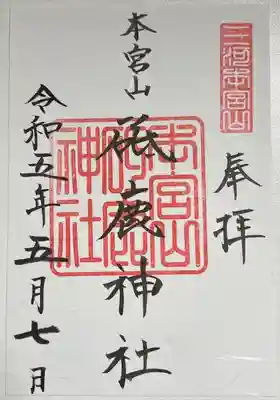 三河本宮山
奉拝
本宮山
砥鹿神社
本宮山砥鹿神社
令和五年五月七日